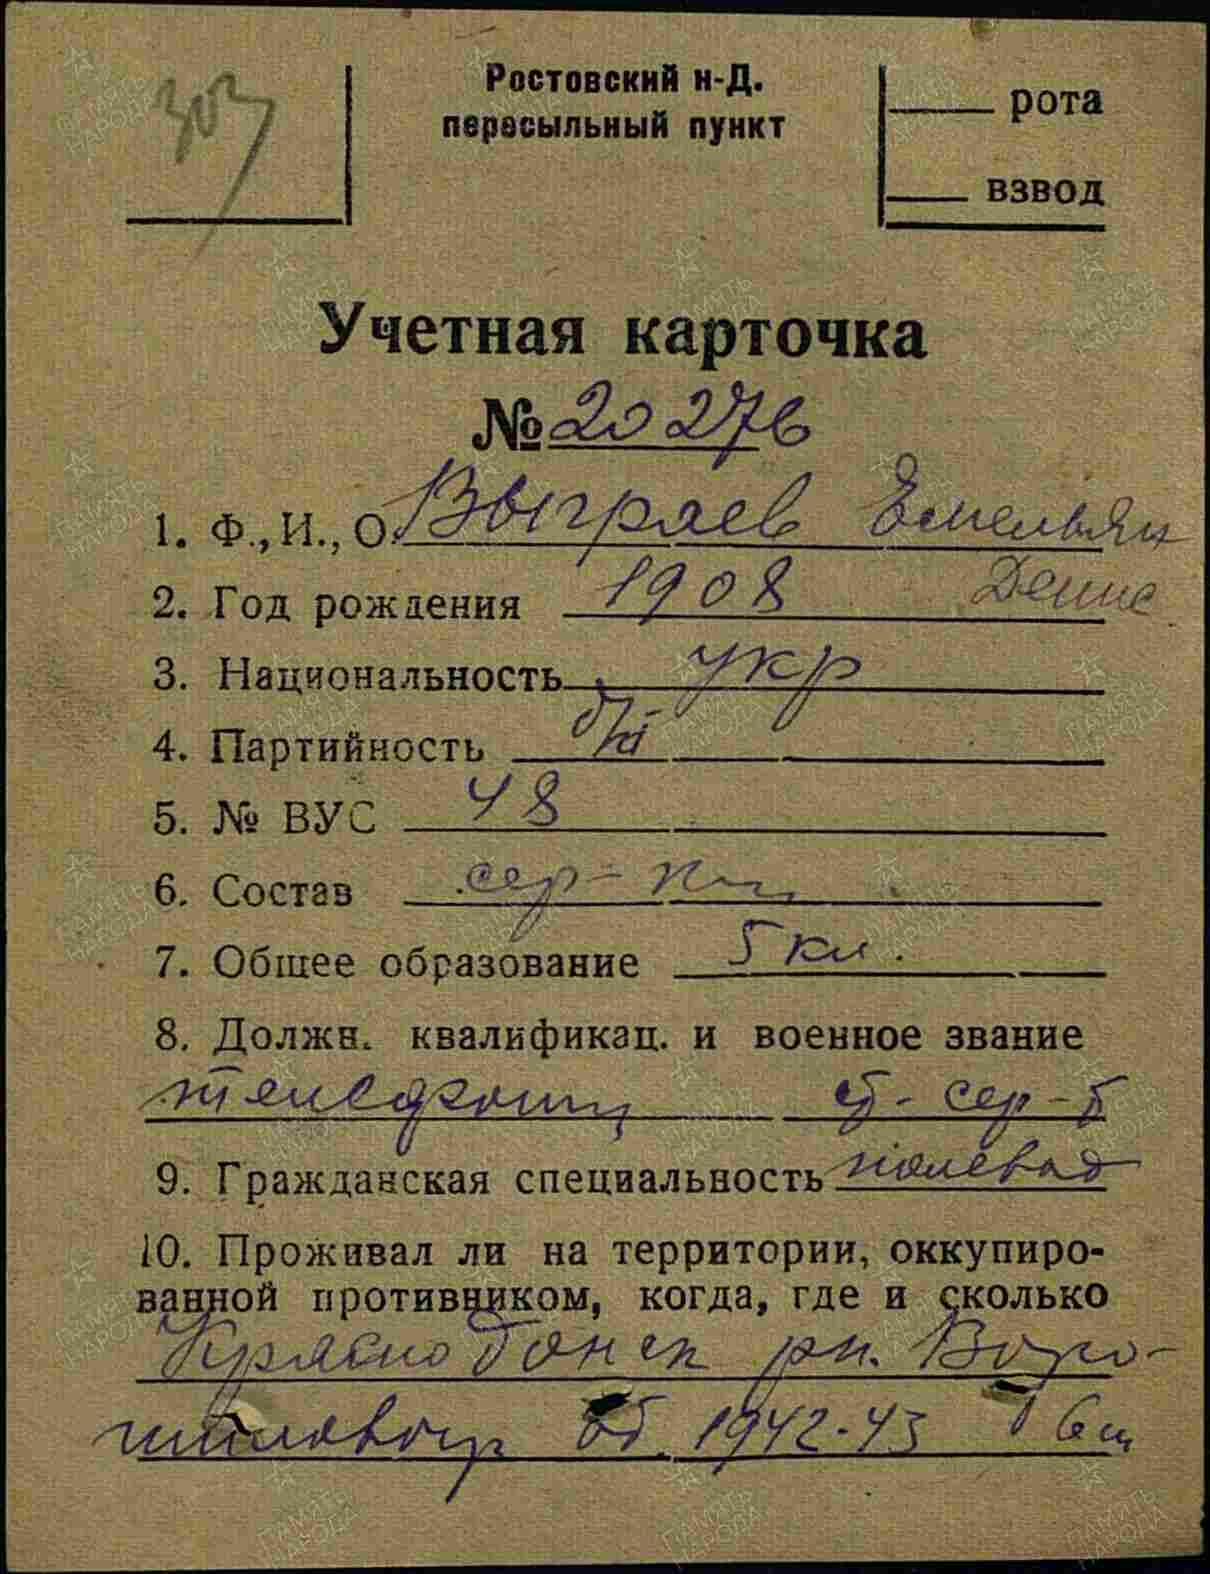 303
Ростовский н-Д.
пересыльный пункт
рота
взвод
Учетная карточка
№ 20276
1. Ф., И., О. Выгряев Емельян
Денис
2. Год рождения 1908
3. Национальность укр
4. Партийность б/п
5. № ВУС 48
6. Состав сер-
7. Общее образование 5 кл.
8. Должн. квалификац. и военное звание
телефонищ ст. сер-т
9. Гражданская специальность полевод
10. Проживал ли на территории, оккупиро-
ванной противником, когда, где и сколько
Краснодонск рн. Воро-
шиловогр об. 1942-43 6 м
ПАМЯТЬ НАРОДА